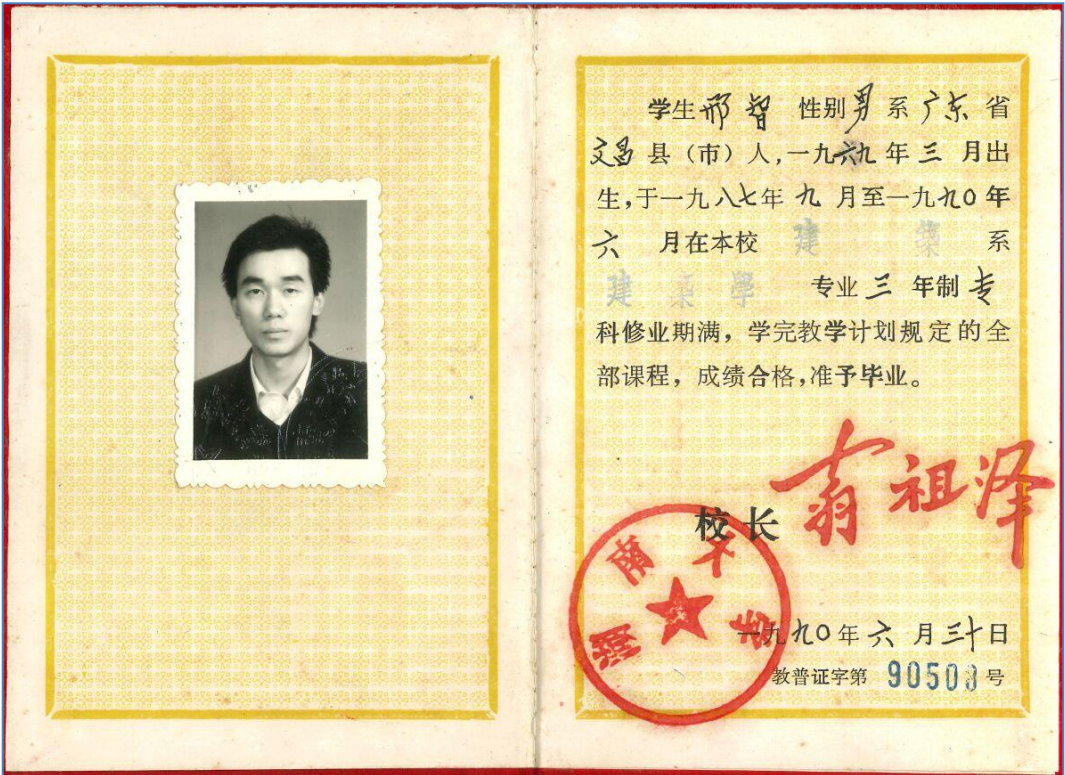 学生邢智 性别男系广东省
文昌县（市）人,一九六九年三月出
生,于一九八七年九月至一九九〇年
六 月在本校 建 築 系
建 築 學 专业三年制专
科修业期满，学完教学计划规定的全
部课程，成绩合格,准予毕业。
校长 翁祖泽
湖南大学
一九九〇年六月三十日
教普证字第 号